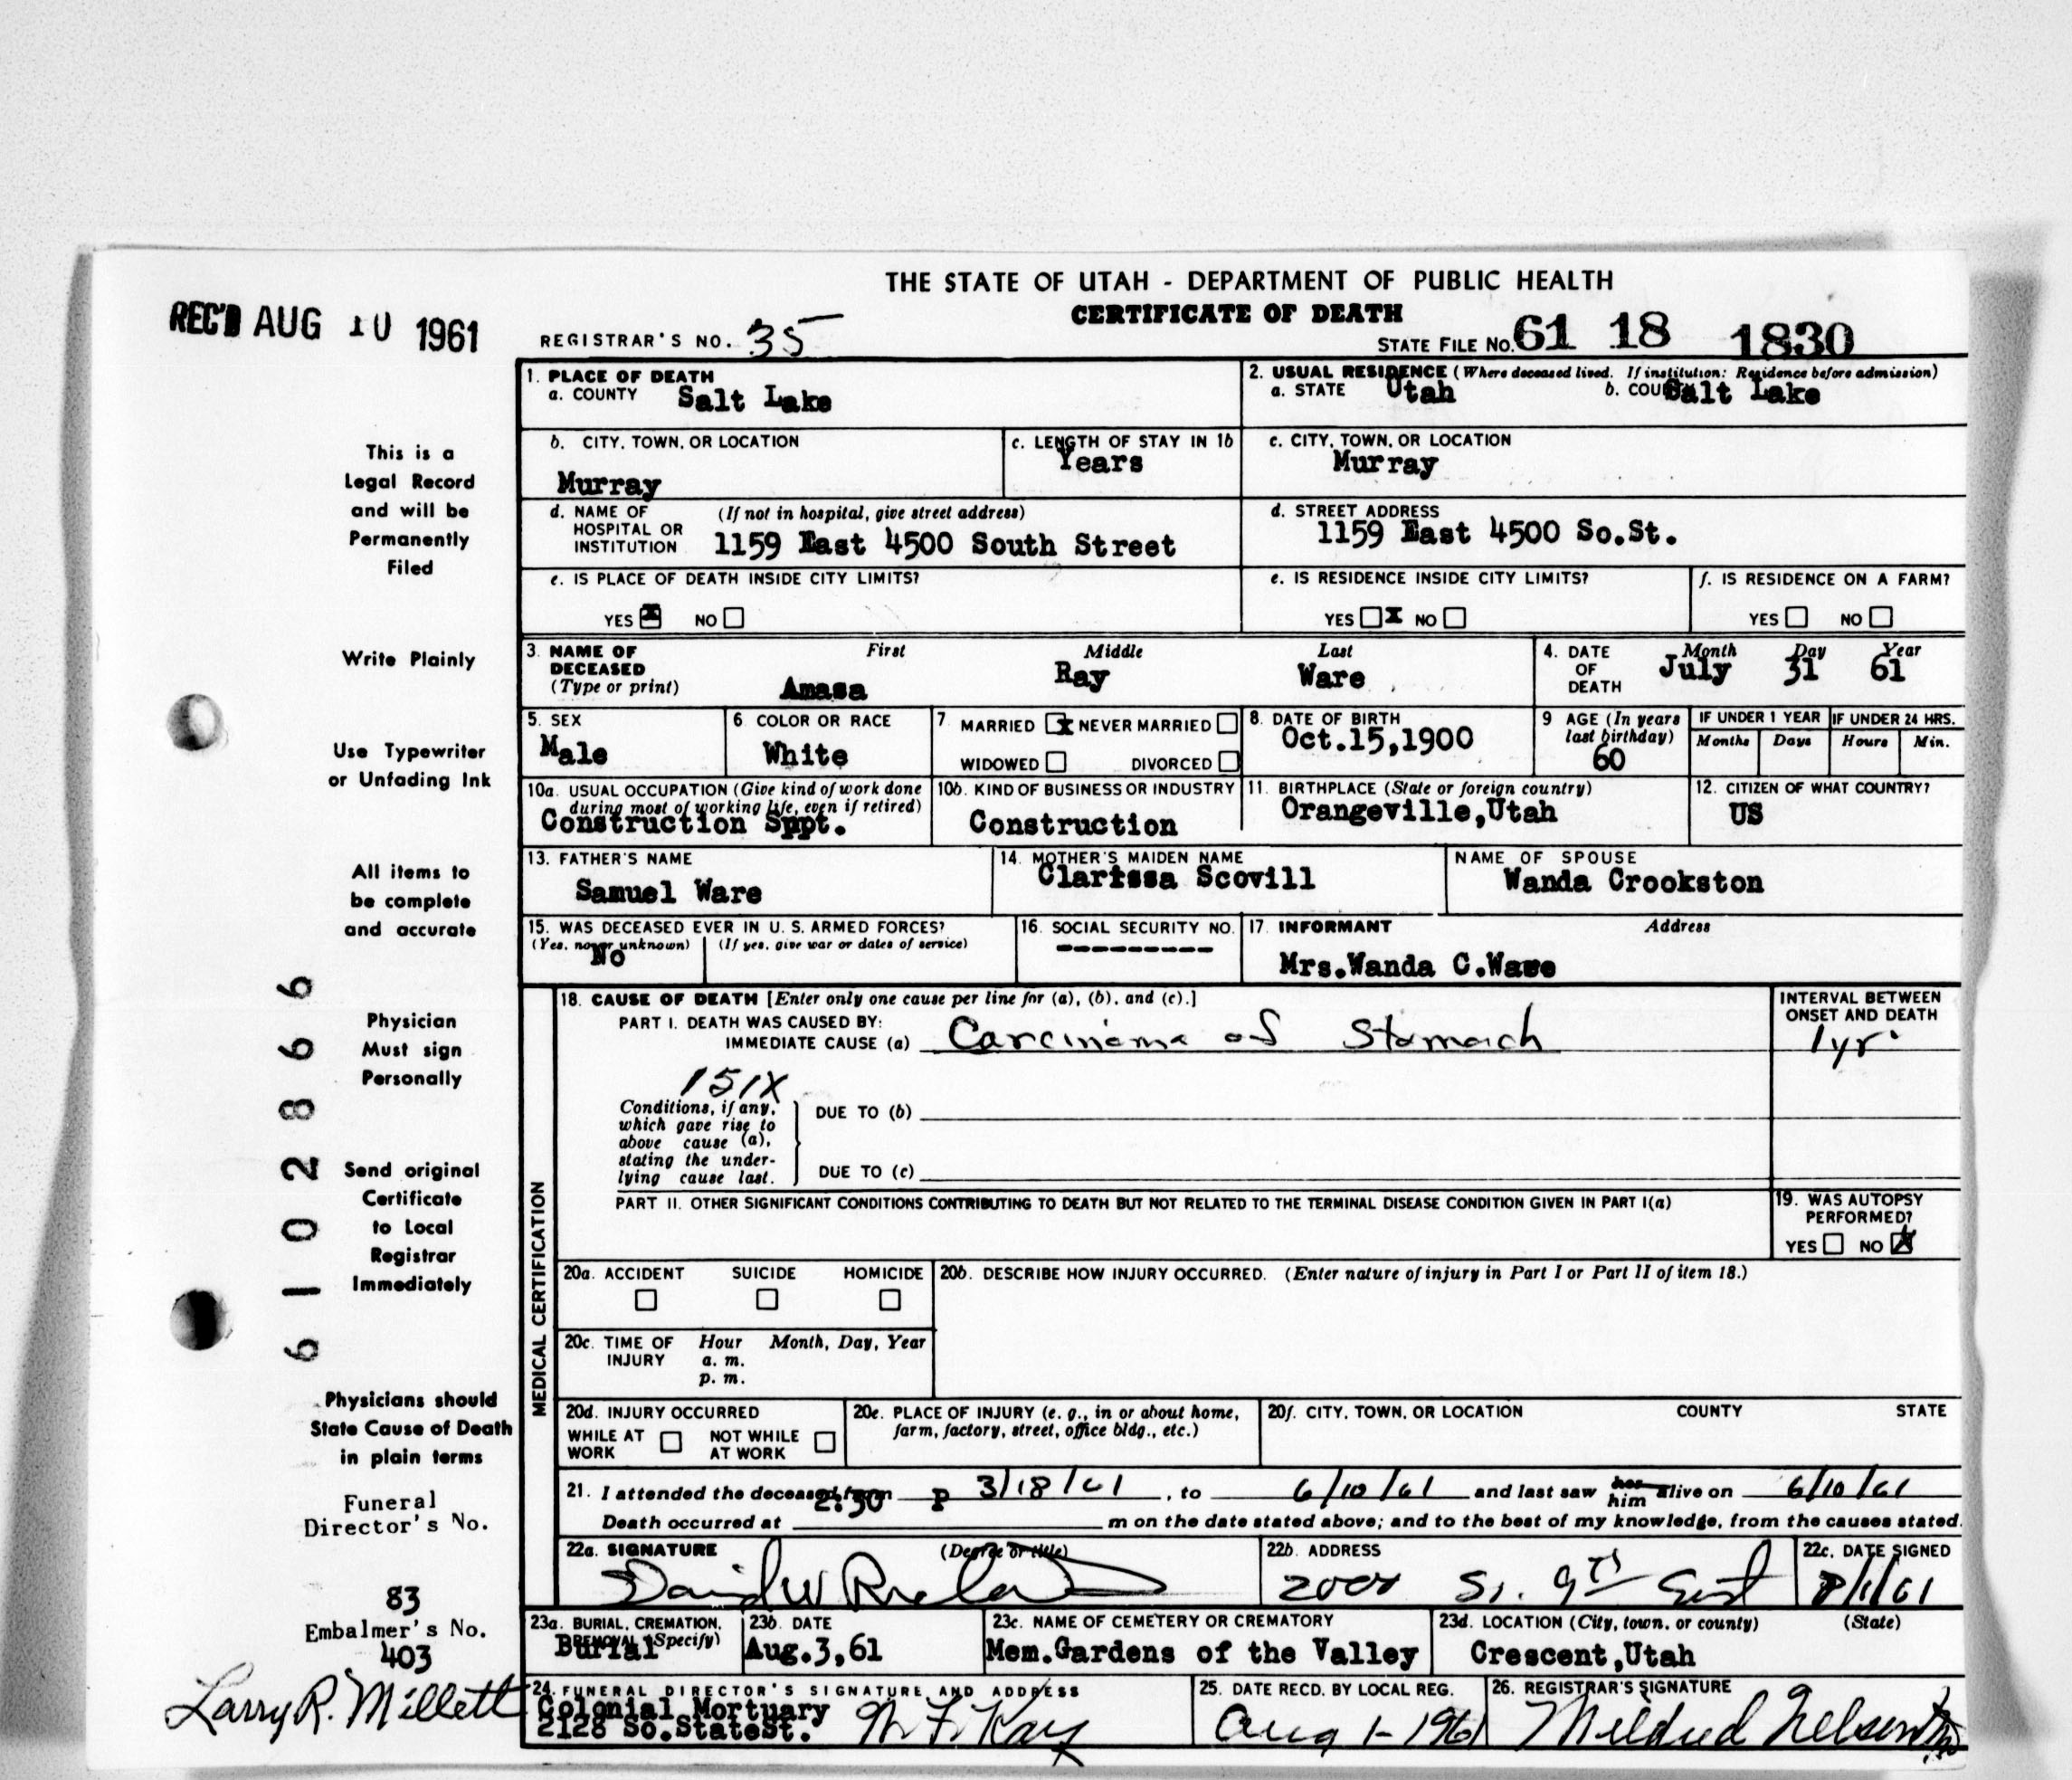 THE STATE OF UTAH - DEPARTMENT OF PUBLIC HEALTH
CERTIFICATE OF DEATH
REC'D AUG 10 1961
REGISTRAR'S NO. 35
STATE FILE NO. 61 18 1830
1. PLACE OF DEATH
a. COUNTY Salt Lake
2. USUAL RESIDENCE (Where deceased lived. If institution: Residence before admission)
a. STATE Utah b. COUNTY Salt Lake
b. CITY, TOWN, OR LOCATION
Murray
c. LENGTH OF STAY IN 1b
Years
c. CITY, TOWN, OR LOCATION
Murray
d. NAME OF (If not in hospital, give street address)
HOSPITAL OR
INSTITUTION 1159 East 4500 South Street
d. STREET ADDRESS
1159 East 4500 So.St.
e. IS PLACE OF DEATH INSIDE CITY LIMITS?
YES X NO
e. IS RESIDENCE INSIDE CITY LIMITS?
YES X NO
f. IS RESIDENCE ON A FARM?
YES NO
3. NAME OF DECEASED (Type or print)
First Middle Last
Amasa Ray Ware
4. DATE OF DEATH
Month Day Year
July 31 61
5. SEX
Male
6. COLOR OR RACE
White
7. MARRIED X NEVER MARRIED
WIDOWED DIVORCED
8. DATE OF BIRTH
Oct.15,1900
9 AGE (In years
last birthday)
60
IF UNDER 1 YEAR IF UNDER 24 HRS.
Months Days Hours Min.
10a. USUAL OCCUPATION (Give kind of work done
during most of working life, even if retired)
Construction Sppt.
10b. KIND OF BUSINESS OR INDUSTRY
Construction
11. BIRTHPLACE (State or foreign country)
Orangeville,Utah
12. CITIZEN OF WHAT COUNTRY?
US
13. FATHER'S NAME
Samuel Ware
14. MOTHER'S MAIDEN NAME
Clarissa Scovill
NAME OF SPOUSE
Wanda Crookston
15. WAS DECEASED EVER IN U. S. ARMED FORCES?
(Yes, no, or unknown) (If yes, give war or dates of service)
No
16. SOCIAL SECURITY NO.
---------
17. INFORMANT Address
Mrs.Wanda C.Ware
MEDICAL CERTIFICATION
18. CAUSE OF DEATH [Enter only one cause per line for (a), (b), and (c).]
PART I. DEATH WAS CAUSED BY:
IMMEDIATE CAUSE (a) Carcinoma of Stomach
INTERVAL BETWEEN
ONSET AND DEATH
1 yr.
151X
Conditions, if any,
which gave rise to
above cause (a),
stating the under-
lying cause last.
DUE TO (b)
DUE TO (c)
PART II. OTHER SIGNIFICANT CONDITIONS CONTRIBUTING TO DEATH BUT NOT RELATED TO THE TERMINAL DISEASE CONDITION GIVEN IN PART I(a)
19. WAS AUTOPSY
PERFORMED?
YES NO X
20a. ACCIDENT SUICIDE HOMICIDE
20b. DESCRIBE HOW INJURY OCCURRED. (Enter nature of injury in Part I or Part II of item 18.)
20c. TIME OF INJURY
Hour Month, Day, Year
a. m.
p. m.
20d. INJURY OCCURRED
WHILE AT WORK NOT WHILE AT WORK
20e. PLACE OF INJURY (e. g., in or about home,
farm, factory, street, office bldg., etc.)
20f. CITY, TOWN, OR LOCATION COUNTY STATE
21. I attended the deceased from 3/18/61, to 6/10/61 and last saw her him alive on 6/10/61
2:30 P
Death occurred at m on the date stated above; and to the best of my knowledge, from the causes stated.
22a. SIGNATURE (Degree or title)
David W
22b. ADDRESS
So. 9th East
22c. DATE SIGNED
8/1/61
23a. BURIAL, CREMATION,
REMOVAL (Specify)
Burial
23b. DATE
Aug.3,61
23c. NAME OF CEMETERY OR CREMATORY
Mem.Gardens of the Valley
23d. LOCATION (City, town, or county) (State)
Crescent,Utah
24. FUNERAL DIRECTOR'S SIGNATURE AND ADDRESS
Colonial Mortuary
2128 So.StateSt.
Kay
25. DATE RECD. BY LOCAL REG.
Aug 1-1961
26. REGISTRAR'S SIGNATURE
Mildred Nelson
This is a
Legal Record
and will be
Permanently
Filed
Write Plainly
Use Typewriter
or Unfading Ink
All items to
be complete
and accurate
Physician
Must sign
Personally
Send original
Certificate
to Local
Registrar
Immediately
Physicians should
State Cause of Death
in plain terms
Funeral
Director's No.
83
Embalmer's No.
403
Larry R. Millett
61028669